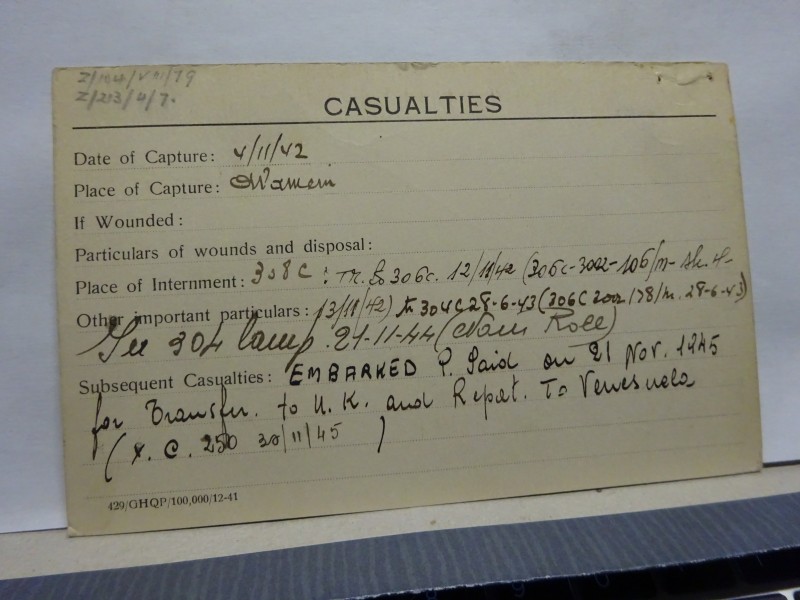 Z/213/4/7.
CASUALTIES
Date of Capture: 4/11/42
Place of Capture:
If Wounded:
Particulars of wounds and disposal:
Place of Internment: 308C: Tr. to 306c. 12/11/42 (306c-3002-106/m-
Other important particulars: 13/11/42) to 304C 28-6-43 (306C 2002/78/m. 28-6-43)
304 Camp. 21-11-44 (Nom Roll)
Subsequent Casualties: EMBARKED P. Said on 21 Nov. 1945
for Transfer. to U.K. and Repat. To Venesuela
(X.C. 250 30/11/45)
429/GHQP/100,000/12-41